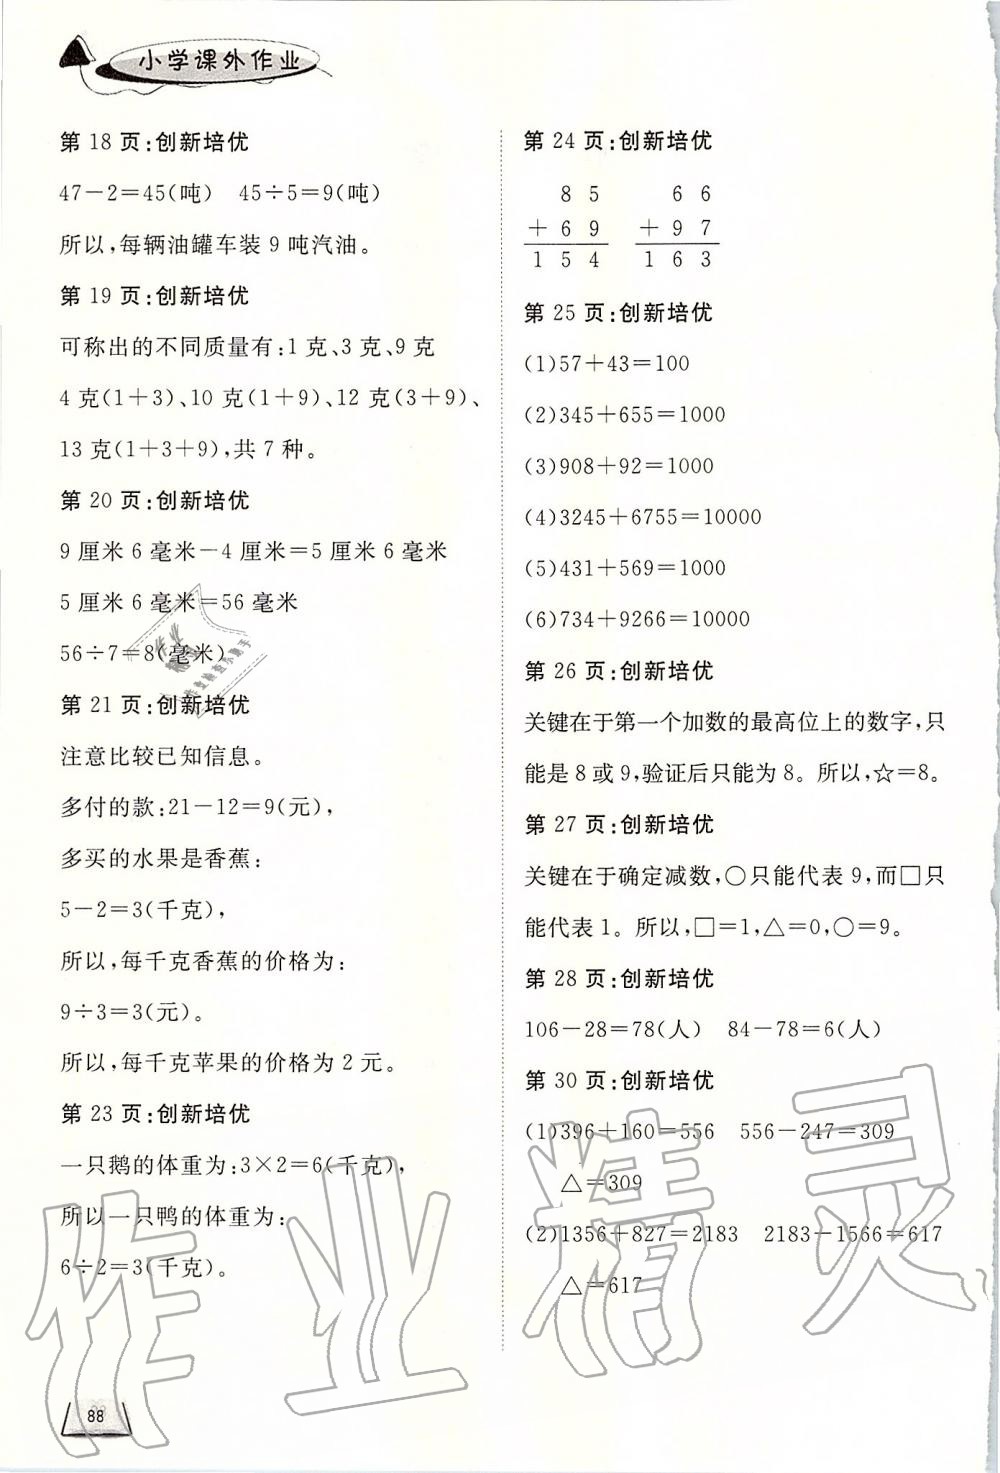 小学课外作业
第 18 页:创新培优
47－2＝45(吨) 45÷5＝9(吨)
所以,每辆油罐车装 9 吨汽油。
第 19 页:创新培优
可称出的不同质量有:1 克、3 克、9 克
4 克(1＋3)、10 克(1＋9)、12 克(3＋9)、
13 克(1＋3＋9),共 7 种。
第 20 页:创新培优
9 厘米 6 毫米－4 厘米＝5 厘米 6 毫米
5 厘米 6 毫米＝56 毫米
56÷7＝8(毫米)
第 21 页:创新培优
注意比较已知信息。
多付的款:21－12＝9(元),
多买的水果是香蕉:
5－2＝3(千克),
所以,每千克香蕉的价格为:
9÷3＝3(元)。
所以,每千克苹果的价格为 2 元。
第 23 页:创新培优
一只鹅的体重为:3×2＝6(千克),
所以一只鸭的体重为:
6÷2＝3(千克)。
88
第 24 页:创新培优
8 5 6 6
＋ 6 9 ＋ 9 7
1 5 4 1 6 3
第 25 页:创新培优
(1)57＋43＝100
(2)345＋655＝1000
(3)908＋92＝1000
(4)3245＋6755＝10000
(5)431＋569＝1000
(6)734＋9266＝10000
第 26 页:创新培优
关键在于第一个加数的最高位上的数字,只
能是 8 或 9,验证后只能为 8。所以,☆＝8。
第 27 页:创新培优
关键在于确定减数,○只能代表 9,而□只
能代表 1。所以,□＝1,△＝0,○＝9。
第 28 页:创新培优
106－28＝78(人) 84－78＝6(人)
第 30 页:创新培优
(1)396＋160＝556 556－247＝309
△＝309
(2)1356＋827＝2183 2183－1566＝617
△＝617
作业精灵